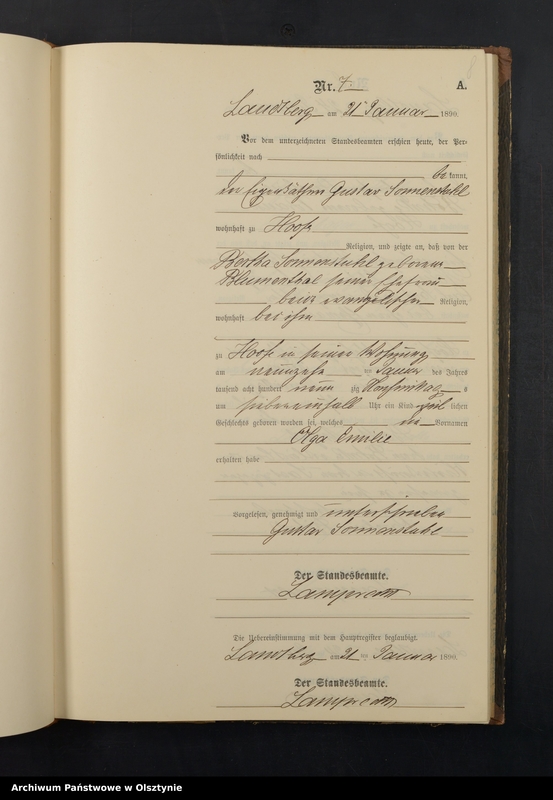 Nr. 7
A.
Landsberg am 21 Januar 1890
Vor dem unterzeichneten Standesbeamten erschien heute, der Per-
sönlichkeit nach
be kannt,
der Eigenkäthner Gustav Sonnenstuhl
wohnhaft zu Hoofe
Religion, und zeigte an, daß von der
Bertha Sonnenstuhl geborene
Blumenthal seiner Ehefrau
beide evangelischer Religion,
wohnhaft bei ihm
zu Hoofe in seiner Wohnung
am neunzehn ten Januar des Jahres
tausend acht hundert neun zig Nachmittag s
um sieben einhalb Uhr ein Kind weib lichen
Geschlechts geboren worden sei, welches die Vornamen
Olga Emilie
erhalten habe
Vorgelesen, genehmigt und unterschrieben
Gustav Sonnenstuhl
Der Standesbeamte.
Die Uebereinstimmung mit dem Hauptregister beglaubigt.
Landsberg am 21 ten Januar 1890.
Der Standesbeamte.
Archiwum Państwowe w Olsztynie